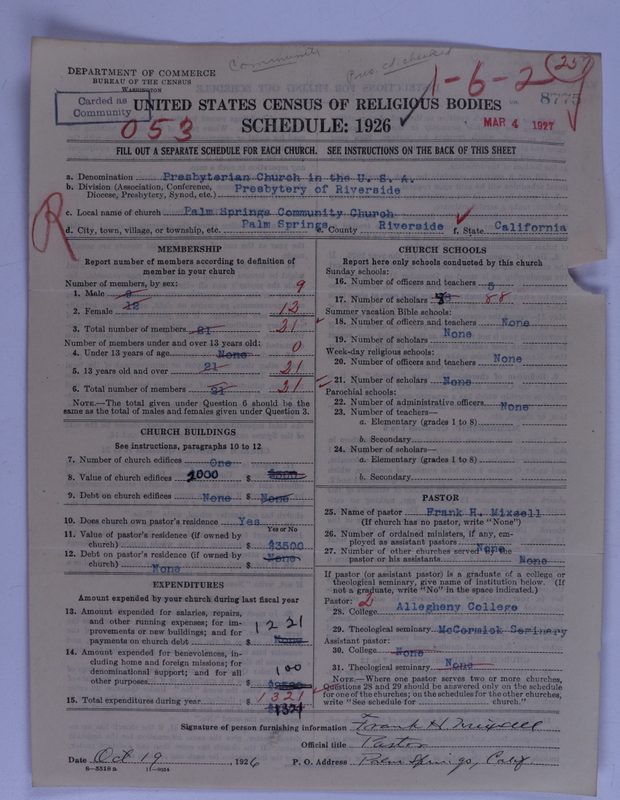 Community
Proc. ch. checked
1-6-2
(25)
DEPARTMENT OF COMMERCE
BUREAU OF THE CENSUS
WASHINGTON
8775
Carded as
Community
UNITED STATES CENSUS OF RELIGIOUS BODIES
053
SCHEDULE: 1926 ✓
MAR 4 1927
FILL OUT A SEPARATE SCHEDULE FOR EACH CHURCH. SEE INSTRUCTIONS ON THE BACK OF THIS SHEET
a. Denomination Presbyterian Church in the U. S. A.
b. Division (Association, Conference, Diocese, Presbytery, Synod, etc.) Presbytery of Riverside
c. Local name of church Palm Springs Community Church
d. City, town, village, or township, etc. Palm Springs e. County Riverside f. State California
R
MEMBERSHIP
Report number of members according to definition of
member in your church
Number of members, by sex:
1. Male 9 9
2. Female 12 12
3. Total number of members 21 21
Number of members under and over 13 years old:
4. Under 13 years of age None 0
5. 13 years old and over 21 21
6. Total number of members 21 21
NOTE.—The total given under Question 6 should be the
same as the total of males and females given under Question 3.
CHURCH BUILDINGS
See instructions, paragraphs 10 to 12
7. Number of church edifices One
8. Value of church edifices 2000 $
9. Debt on church edifices None $ None
10. Does church own pastor's residence Yes
Yes or No
11. Value of pastor's residence (if owned by
church) $ $3500
12. Debt on pastor's residence (if owned by
church) None $ None
EXPENDITURES
Amount expended by your church during last fiscal year
13. Amount expended for salaries, repairs,
and other running expenses; for im-
provements or new buildings; and for
payments on church debt $ None 1221
14. Amount expended for benevolences, in-
cluding home and foreign missions; for
denominational support; and for all
other purposes $ 100
15. Total expenditures during year $ 1321
1321
CHURCH SCHOOLS
Report here only schools conducted by this church
Sunday schools:
16. Number of officers and teachers 5
17. Number of scholars 88
Summer vacation Bible schools:
18. Number of officers and teachers None
19. Number of scholars None
Week-day religious schools:
20. Number of officers and teachers None
21. Number of scholars None
Parochial schools:
22. Number of administrative officers None
23. Number of teachers—
a. Elementary (grades 1 to 8)
b. Secondary
24. Number of scholars—
a. Elementary (grades 1 to 8)
b. Secondary
PASTOR
25. Name of pastor Frank H. Mixsell
(If church has no pastor, write "None")
26. Number of ordained ministers, if any, em-
ployed as assistant pastors None
27. Number of other churches served by the
pastor or his assistants None
If pastor (or assistant pastor) is a graduate of a college or
theological seminary, give name of institution below. (If
not a graduate, write "No" in the space indicated.)
Pastor: 2
28. College Allegheny College
29. Theological seminary McCormick Seminary
Assistant pastor:
30. College None
31. Theological seminary None
NOTE.—Where one pastor serves two or more churches,
Questions 28 and 29 should be answered only on the schedule
for one of the churches; on the schedules for the other churches,
write "See schedule for church."
Signature of person furnishing information Frank H Mixsell
Official title Pastor
Date Oct 19, 1926 P. O. Address Palm Springs, Calif
8—5518a 11—9024